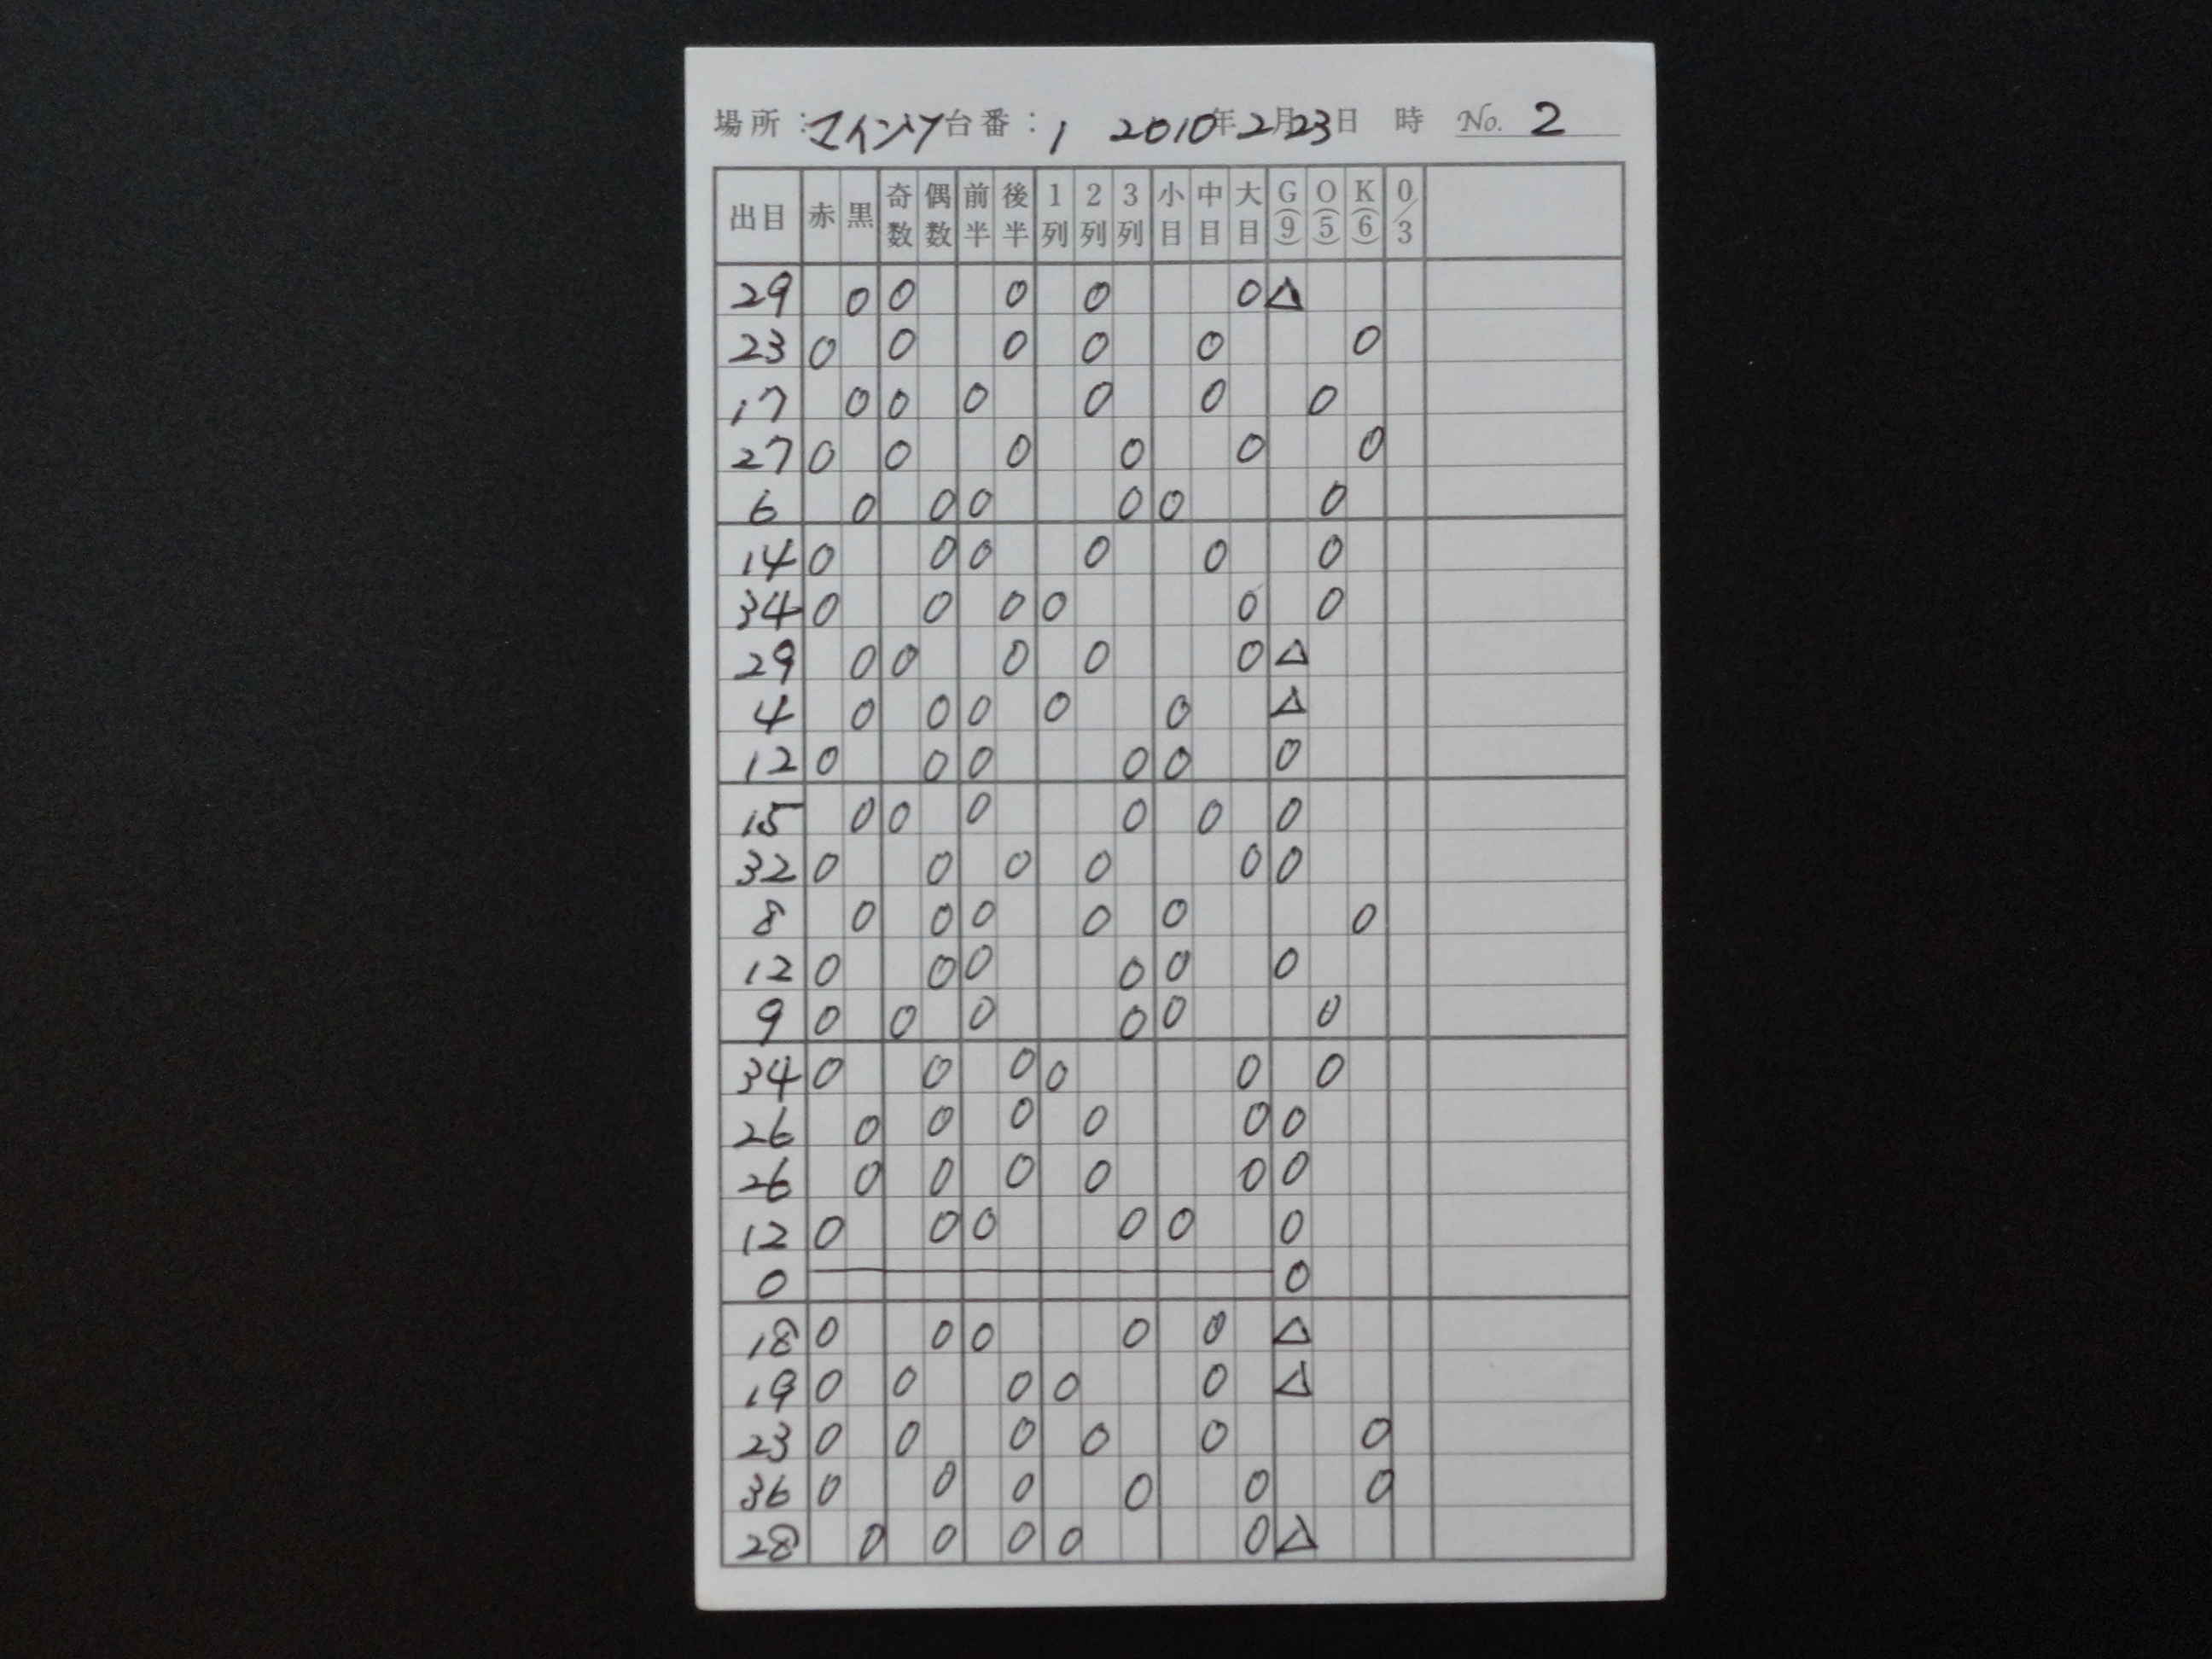 場所：マインツ 台番：1 2010年2月23日 時 No. 2
出目 赤 黒 奇数 偶数 前半 後半 1列 2列 3列 小目 中目 大目 G(9) O(5) K(6) 0/3
29 0 0 0 0 0 △
23 0 0 0 0 0 0
17 0 0 0 0 0 0
27 0 0 0 0 0 0
6 0 0 0 0 0 0
14 0 0 0 0 0 0
34 0 0 0 0 0 0
29 0 0 0 0 0 △
4 0 0 0 0 0 △
12 0 0 0 0 0 0
15 0 0 0 0 0 0
32 0 0 0 0 0 0
8 0 0 0 0 0 0
12 0 0 0 0 0 0
9 0 0 0 0 0 0
34 0 0 0 0 0 0
26 0 0 0 0 0 0
26 0 0 0 0 0 0
12 0 0 0 0 0 0
0 0
18 0 0 0 0 0 △
19 0 0 0 0 0 △
23 0 0 0 0 0 0
36 0 0 0 0 0 0
28 0 0 0 0 0 △